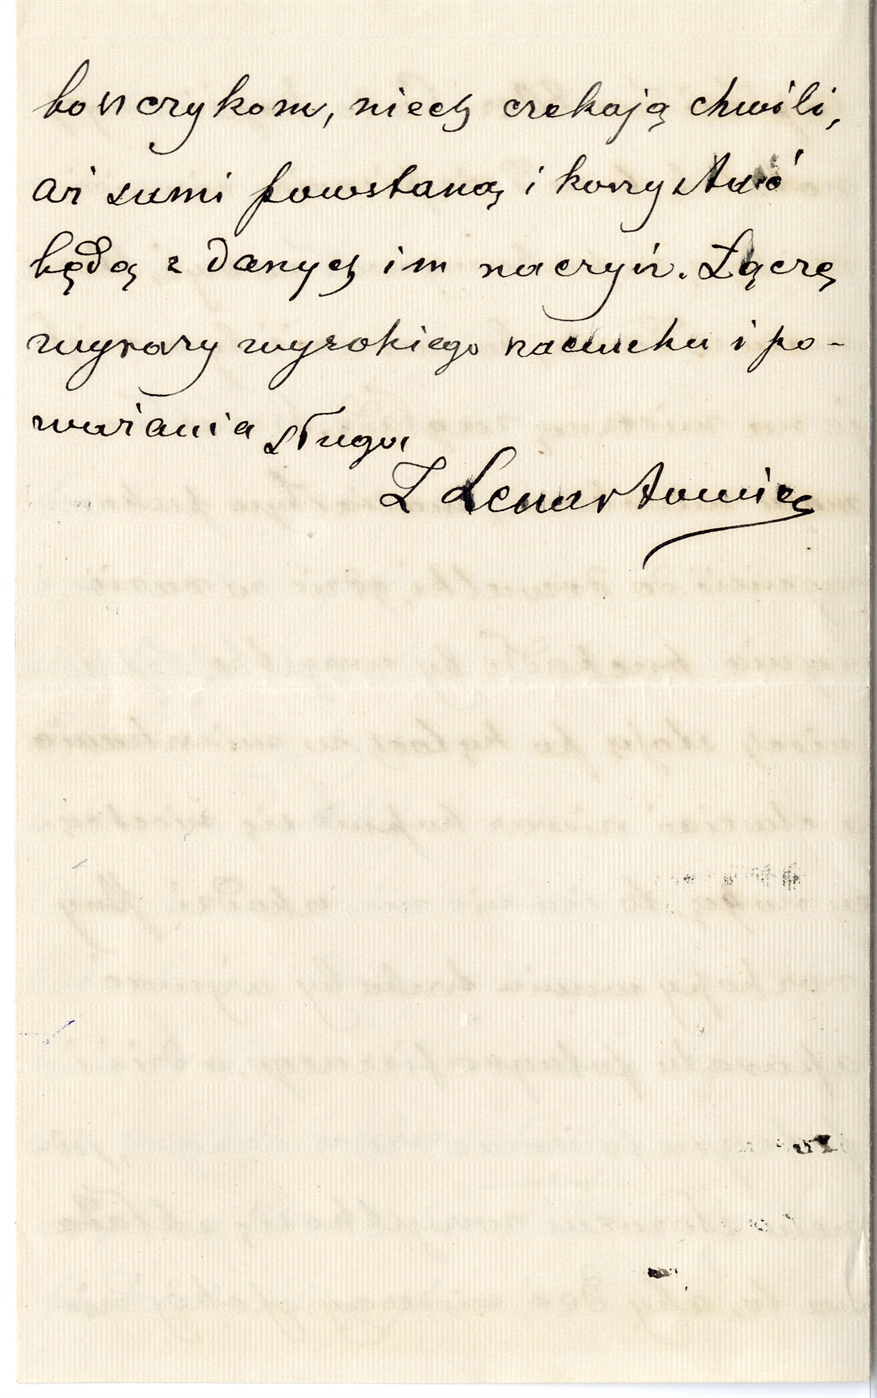 bończykom, niech czekają chwili,
aż sumi powstaną i korzystać
będą z danych im naczyń. Łączę
wyrazy wysokiego szacunku i po-
ważania sługa
T Lenartowicz